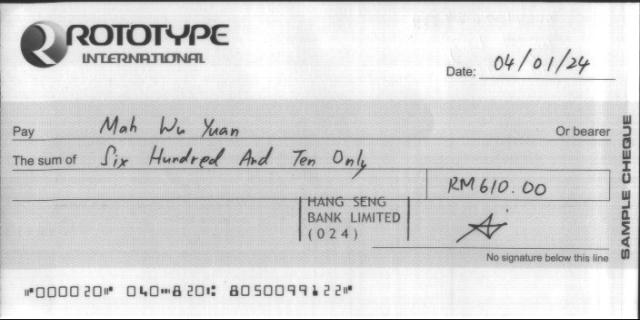 ROTOTYPE
INTERNATIONAL
Date: 04/01/24
Pay Mah Wu Yuan Or bearer
The sum of Six Hundred And Ten Only
RM610.00
HANG SENG
BANK LIMITED
(024)
No signature below this line
SAMPLE CHEQUE
⑈000020⑈ 040⑉820⑆ 8050099122⑈